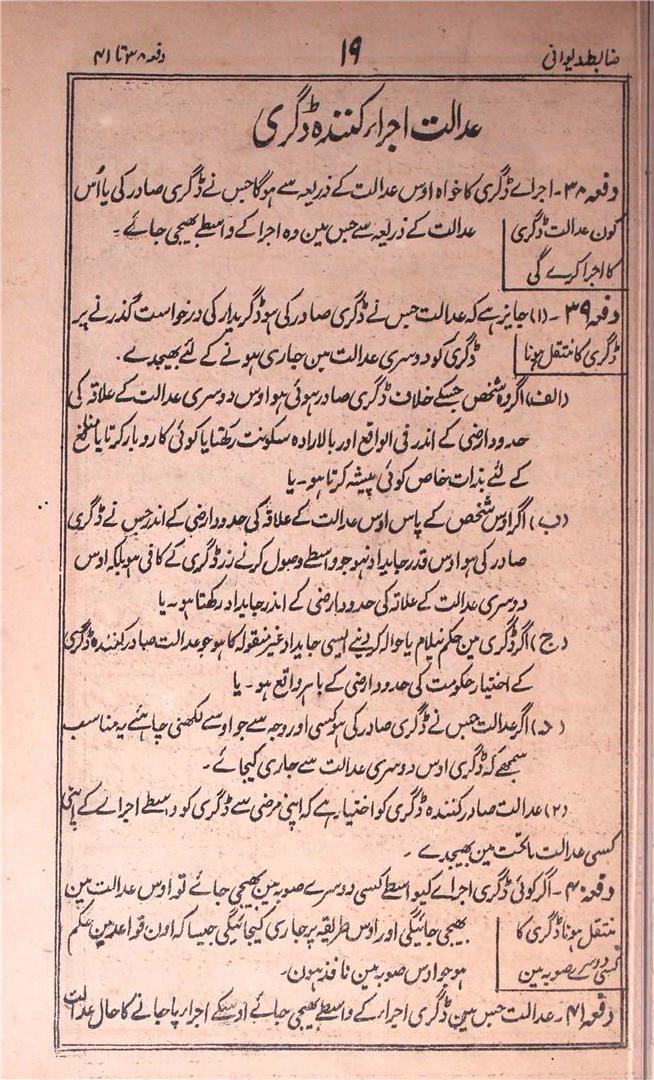 ضابطہ دیوانی
۱۹
دفعہ ۳۸ تا ۴۱
عدالت اجراء کنندہ ڈگری
دفعہ ۳۸۔ اجراے ڈگری کا خواہ اوس عدالت کے ذریعہ سے ہوگا جس نے ڈگری صادر کی یا اُس
کون عدالت ڈگری
کا اجرا کرے گی
عدالت کے ذریعہ سے جس مین وہ اجرا کے واسطے بھیجی جائے۔
دفعہ ۳۹۔ (۱) جایز ہے کہ عدالت جس نے ڈگری صادر کی ہو ڈگریدار کی درخواست گذرنے پر
ڈگری کا منتقل ہونا
ڈگری کو دوسری عدالت میں جاری ہونے کے لئے بھیجدے۔
(الف) اگر وہ شخص جسکے خلاف ڈگری صادر ہوئی ہو اوس دوسری عدالت کے علاقہ کی
حدود ارضی کے اندر فی الواقع اور بالارادہ سکونت رکھتا یا کوئی کاروبار کرتا یا منافع
کے لئے بذات خاص کوئی پیشہ کرتا ہو۔ یا
(ب) اگر اوس شخص کے پاس اوس عدالت کے علاقہ کی حدود ارضی کے اندر جس نے ڈگری
صادر کی ہو اوس قدر جایداد نہو جو واسطے وصول کرنے زر ڈگری کے کافی ہو بلکہ اوس
دوسری عدالت کے علاقہ کی حدود ارضی کے اندر جایداد رکھتا ہو۔ یا
(ج) اگر ڈگری مین حکم نیلام یا حوالہ کر دینے ایسی جایداد غیر منقولہ کا ہو جو عدالت صادر کنندہ ڈگری
کے اختیار حکومت کی حدود ارضی کے باہر واقع ہو۔ یا
(د) اگر عدالت جس نے ڈگری صادر کی ہو کسی اور وجہ سے جو اوسے لکھنی چاہئے یہ مناسب
سمجھے کہ ڈگری اوس دوسری عدالت سے جاری کیجائے۔
(۲) عدالت صادر کنندہ ڈگری کو اختیار ہے کہ اپنی مرضی سے ڈگری کو واسطے اجراے کے اپنی
کسی عدالت ماتحت مین بھیجدے۔
دفعہ ۴۰۔ اگر کوئی ڈگری اجراے کیواسطے کسی دوسرے صوبہ مین بھیجی جائے تو اوس عدالت مین
منتقل ہونا ڈگری کا
کسی دوسرے صوبہ مین
بھیجی جائیگی اور اوس طریقہ پر جاری کیجائیگی جیسا کہ اون قواعد مین حکم
ہو جو اوس صوبہ مین نافذ ہون۔
دفعہ ۴۱۔ عدالت جس مین ڈگری اجراء کے واسطے بھیجی جائے اوسکے اجراء پا جانے کا حال عدالت